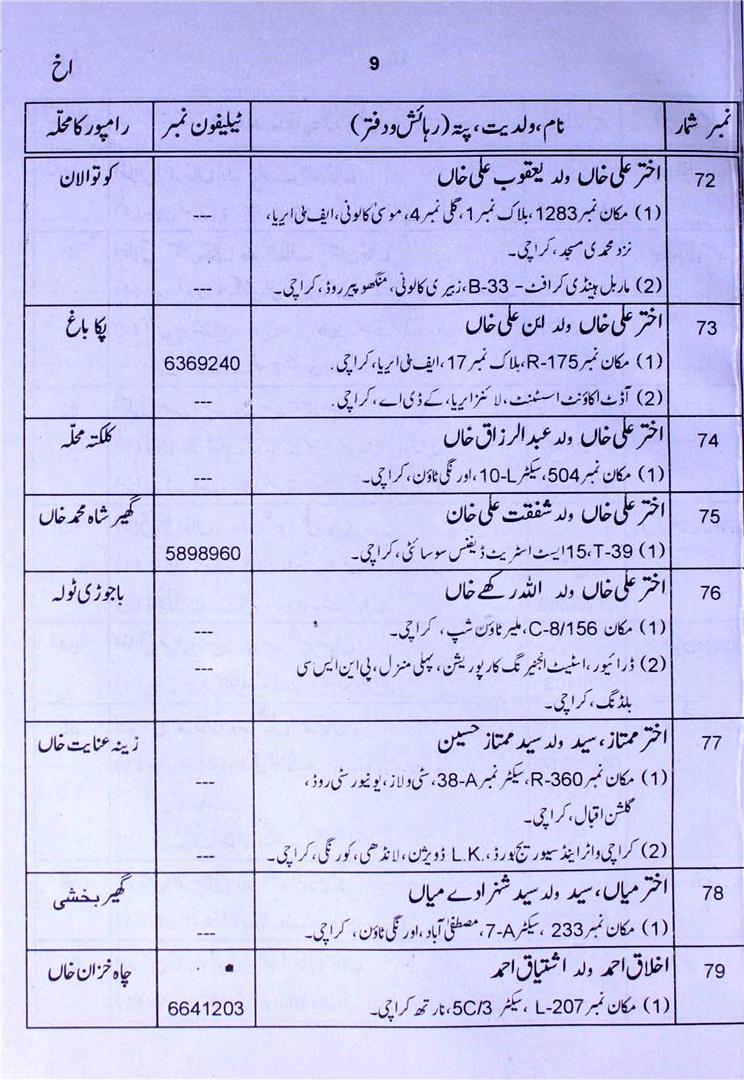 اخ
9
نمبر شمار نام، ولدیت، پتہ (رہائش و دفتر) ٹیلیفون نمبر رامپور کا محلّہ
72 اختر علی خاں ولد یعقوب علی خاں کوتوالان
(1) مکان نمبر 1283، بلاک نمبر 1، گلی نمبر 4، موسیٰ کالونی، ایف بی ایریا، ---
نزد محمدی مسجد، کراچی۔
(2) ماربل ہینڈی کرافٹ - B-33، زبیری کالونی، منگھو پیر روڈ، کراچی۔ ---
73 اختر علی خاں ولد ابن علی خاں پکا باغ
(1) مکان نمبر R-175، بلاک نمبر 17، ایف بی ایریا، کراچی۔ 6369240
(2) آڈٹ اکاؤنٹ اسسٹنٹ، لائنز ایریا، کے ڈی اے، کراچی۔ ---
74 اختر علی خاں ولد عبدالرزاق خاں کلکتہ محلّہ
(1) مکان نمبر 504، سیکٹر 10-L، اورنگی ٹاؤن، کراچی۔ ---
75 اختر علی خاں ولد شفقت علی خان گھیر شاہ محمد خاں
(1) T-39، 15 ایسٹ اسٹریٹ ڈیفنس سوسائٹی، کراچی۔ 5898960
76 اختر علی خاں ولد اللہ رکھے خاں باجوڑی ٹولہ
(1) مکان C-8/156، ملیر ٹاؤن شپ، کراچی۔ ---
(2) ڈرائیور، اسٹیٹ انجینرنگ کارپوریشن، پہلی منزل، پی این ایس سی ---
بلڈنگ، کراچی۔
77 اختر ممتاز، سید ولد سید ممتاز حسین زینہ عنایت خاں
(1) مکان نمبر R-360، سیکٹر نمبر 38-A، سٹی ولاز، یونیورسٹی روڈ، ---
گلشن اقبال، کراچی۔
(2) کراچی واٹر اینڈ سیوریج بورڈ، L.K. ڈویژن، لانڈھی، کورنگی، کراچی۔ ---
78 اختر میاں، سید ولد سید شہزادے میاں گھیر بخشی
(1) مکان نمبر 233، سیکٹر 7-A، مصطفیٰ آباد، اورنگی ٹاؤن، کراچی۔ ---
79 اخلاق احمد ولد اشتیاق احمد چاہ خزان خاں
(1) مکان نمبر L-207، سیکٹر 5C/3، نارتھ کراچی۔ 6641203